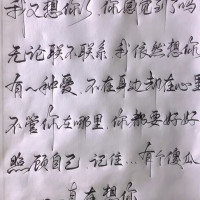 我又想你了.你感觉到了吗
无论联不联系.我依然想你
有一种爱.不在耳边却在心里
不管你在哪里.你都要好好
照顾自己.记住...有个傻瓜
一直在想你